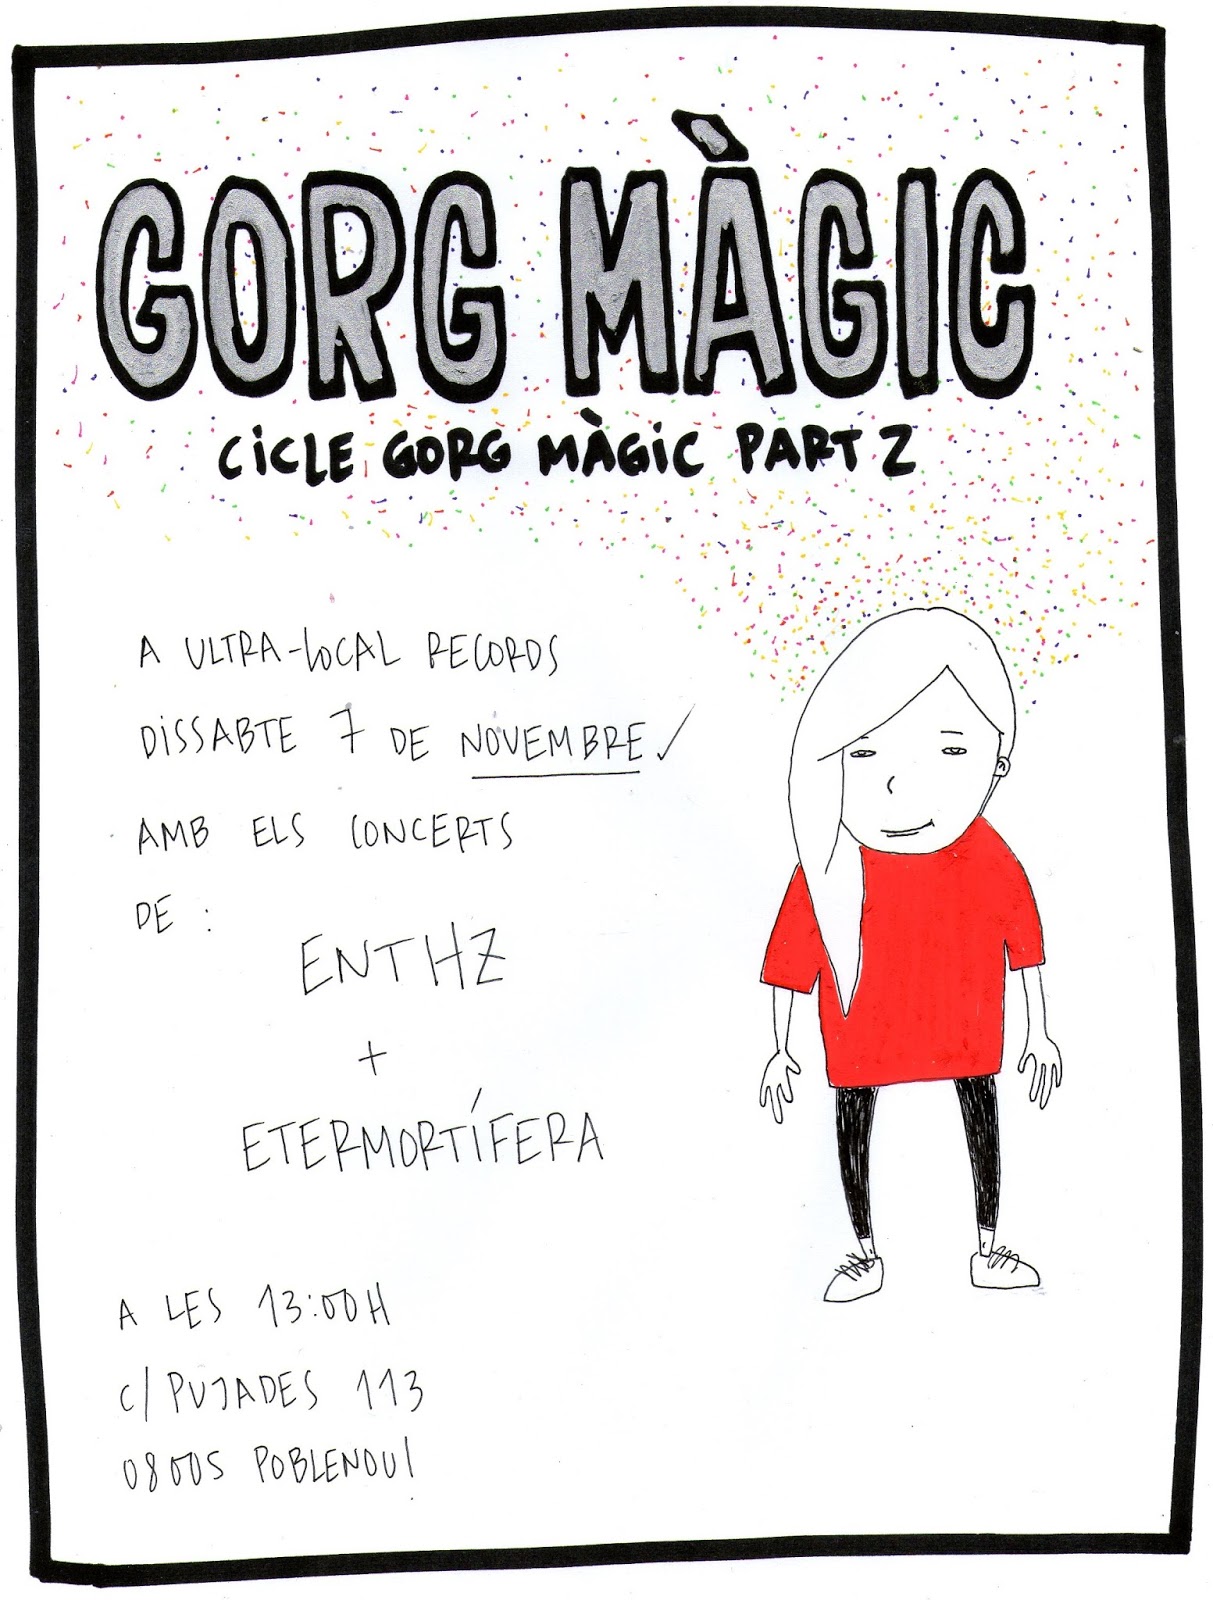 GORG MÀGIC
CICLE GORG MÀGIC PART 2
A ULTRA-LOCAL RECORDS
DISSABTE 7 DE NOVEMBRE/
AMB ELS CONCERTS
DE :
ENTHZ
+
ETERMORTÍFERA
A LES 13:00H
C/PUJADES 113
08005 POBLENOU!